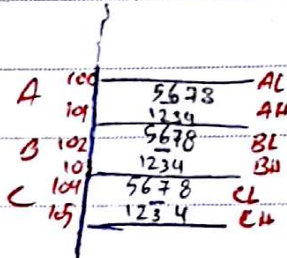 100 5678 AL
A 101 1234 AH
B 102 5678 BL
10 1234 BH
C 104 5678 CL
105 1234 CH